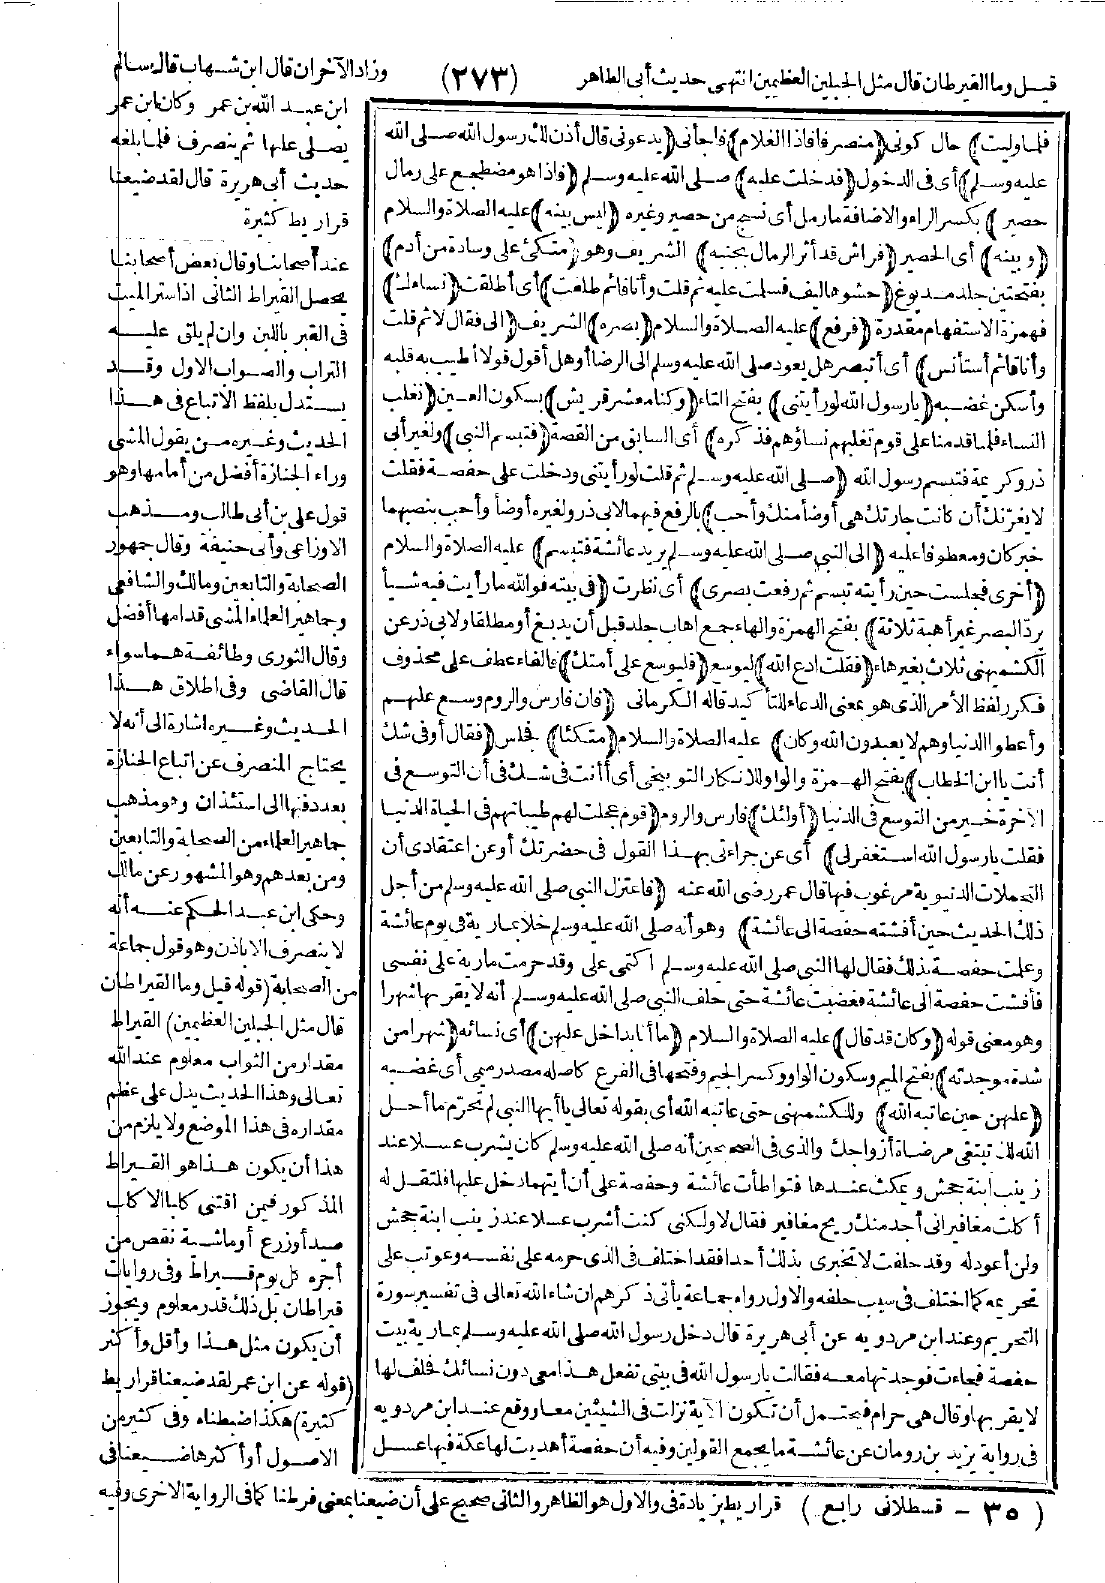 قيل وما القيراطان قال مثل الجبلين العظيمين انتهى حديث أبي الطاهر (٢٧٣) وزاد الآخران قال ابن شهاب قال سالم
ابن عبد الله بن عمر وكان ابن عمر
يصلى عليها ثم ينصرف فلما بلغه
حديث أبي هريرة قال لقد ضيعنا
قراريط كثيرة
عند أصحابنا وقال بعض أصحابنا
يحصل القيراط الثانى اذا ستر الميت
فى القبر باللبن وان لم يلق عليه
التراب والصواب الاول وقد
يستدل بلفظ الاتباع فى هذا
الحديث وغيره من يقول المشى
وراء الجنازة أفضل من أمامها وهو
قول على بن أبى طالب ومذهب
الاوزاعى وأبى حنيفة وقال جمهور
الصحابة والتابعين ومالك والشافعى
وجماهير العلماء المشى قدامها أفضل
وقال الثورى وطائفة هما سواء
قال القاضى وفى اطلاق هذا
الحديث وغيره اشارة الى أنه لا
يحتاج المنصرف عن اتباع الجنازة
بعد دفنها الى استئذان وهو مذهب
جماهير العلماء من الصحابة والتابعين
ومن بعدهم وهو المشهور عن مالك
وحكى ابن عبد الحكم عنه أنه
لا ينصرف الا باذن وهو قول جماعة
من الصحابة (قوله قيل وما القيراطان
قال مثل الجبلين العظيمين) القيراط
مقدار من الثواب معلوم عند الله
تعالى وهذا الحديث يدل على عظم
مقداره فى هذا الموضع ولا يلزم من
هذا أن يكون هذا هو القيراط
المذكور فيمن اقتنى كلبا الا كلب
صيد أو زرع أو ماشية نقص من
أجره كل يوم قيراط وفى روايات
قيراطان بل ذلك قدر معلوم ويجوز
أن يكون مثل هذا وأقل وأكثر
(قوله عن ابن عمر لقد ضيعنا قراريط
كثيرة) هكذا ضبطناه وفى كثير من
الاصول أو أكثرها ضيعنا فى
فلما وليت) حال كونى (منصرفا فاذا الغلام) فاجأنى (يدعونى قال أذن لك رسول الله صلى الله
عليه وسلم) أى فى الدخول (فدخلت عليه) صلى الله عليه وسلم (فاذا هو مضطجع على رمال
حصير) بكسر الراء والاضافة ما رمل أى نسج من حصير وغيره (ليس بينه) عليه الصلاة والسلام
(وبينه) أى الحصير (فراش قد أثر الرمال بجنبه) الشريف وهو (متكئ على وسادة من أدم)
بفتحتين جلد مدبوغ (حشوها ليف فسلمت عليه ثم قلت وأنا قائم طلقت) أى أطلقت (نساءك)
فهمزة الاستفهام مقدرة (فرفع) عليه الصلاة والسلام (بصره) الشريف (الى فقال لا ثم قلت
وأنا قائم أستأنس) أى أتبصر هل يعود صلى الله عليه وسلم الى الرضا أو هل أقول قولا أطيب به قلبه
وأسكن غضبه (يا رسول الله لو رأيتنى) بفتح التاء (وكنا معشر قريش) بسكون العين (نغلب
النساء فلما قدمنا على قوم تغلبهم نساؤهم فذكره) أى السابق من القصة (فتبسم النبى) ولغير أبى
ذر وكريمة فتبسم رسول الله (صلى الله عليه وسلم ثم قلت لو رأيتنى ودخلت على حفصة فقلت
لا يغرّنك أن كانت جارتك هى أوضأ منك وأحب) بالرفع فيهما لابى ذر ولغيره أوضأ وأحب بنصبهما
خبر كان ومعطوفا عليه (الى النبي صلى الله عليه وسلم يريد عائشة فتبسم) عليه الصلاة والسلام
(أخرى فجلست حين رأيته تبسم ثم رفعت بصرى) أى نظرت (فى بيته فوالله ما رأيت فيه شيأ
يردّ البصر غير أهبة ثلاثة) بفتح الهمزة والهاء جمع اهاب جلد قبل أن يدبغ أو مطلقا ولابى ذر عن
الكشميهنى ثلاث بغيرهاء (فقلت ادع الله) ليوسع (فليوسع على أمتك) فالفاء عطف على محذوف
فكرر لفظ الأمر الذى هو بمعنى الدعاء للتأكيد قاله الكرمانى (فان فارس والروم وسع عليهم
وأعطوا الدنيا وهم لا يعبدون الله وكان) عليه الصلاة والسلام (متكئا) فجلس (فقال أوفى شك
أنت يا ابن الخطاب) بفتح الهمزة والواو للانكار التوبيخى أى أأنت فى شك فى أن التوسع فى
الآخرة خير من التوسع فى الدنيا (أولئك) فارس والروم (قوم عجلت لهم طيباتهم فى الحياة الدنيا
فقلت يا رسول الله استغفر لى) أى عن جراءتى بهذا القول فى حضرتك أو عن اعتقادى أن
التجملات الدنيوية مرغوب فيها قال عمر رضى الله عنه (فاعتزل النبى صلى الله عليه وسلم من أجل
ذلك الحديث حين أفشته حفصة الى عائشة) وهو أنه صلى الله عليه وسلم خلا بمارية فى يوم عائشة
وعلمت حفصة بذلك فقال لها النبى صلى الله عليه وسلم اكتمى على وقد حرمت مارية على نفسى
فأفشت حفصة الى عائشة فغضبت عائشة حتى حلف النبى صلى الله عليه وسلم أنه لا يقربها شهرا
وهو معنى قوله (وكان قد قال) عليه الصلاة والسلام (ما أنا بداخل عليهن) أى نسائه (شهرا من
شدة موجدته) بفتح الميم وسكون الواو وكسر الجيم وفتحها فى الفرع كأصله مصدر ميمى أى غضبه
(عليهن حين عاتبه الله) وللكشميهنى حتى عاتبه الله أى بقوله تعالى يا أيها النبى لم تحرّم ما أحل
الله لك تبتغى مرضاة أزواجك والذى فى الصحيحين أنه صلى الله عليه وسلم كان يشرب عسلا عند
زينب ابنة جحش ويمكث عندها فتواطأت عائشة وحفصة على أن أيتهما دخل عليها فلتقل له
أكلت مغافير انى أجد منك ريح مغافير فقال لا ولكنى كنت أشرب عسلا عند زينب ابنة جحش
ولن أعود له وقد حلفت لا تخبرى بذلك أحدا فقد اختلف فى الذى حرمه على نفسه وعوتب على
تحريمه كما اختلف فى سبب حلفه والاول رواه جماعة يأتى ذكرهم ان شاء الله تعالى فى تفسير سورة
التحريم وعند ابن مردويه عن أبى هريرة قال دخل رسول الله صلى الله عليه وسلم بمارية بيت
حفصة فجاءت فوجدتها معه فقالت يا رسول الله فى بيتى تفعل هذا معى دون نسائك فحلف لها
لا يقربها وقال هى حرام فيحتمل أن تكون الآية نزلت فى الشيئين معا ووقع عند ابن مردويه
فى رواية يزيد بن رومان عن عائشة ما يجمع القولين وفيه أن حفصة أهديت لها عكة فيها عسل
(٣٥ - قسطلانى رابع) قراريط بزيادة فى والاول هو الظاهر والثانى صحيح على أن ضيعنا بمعنى فرطنا كما فى الرواية الاخرى وفيه